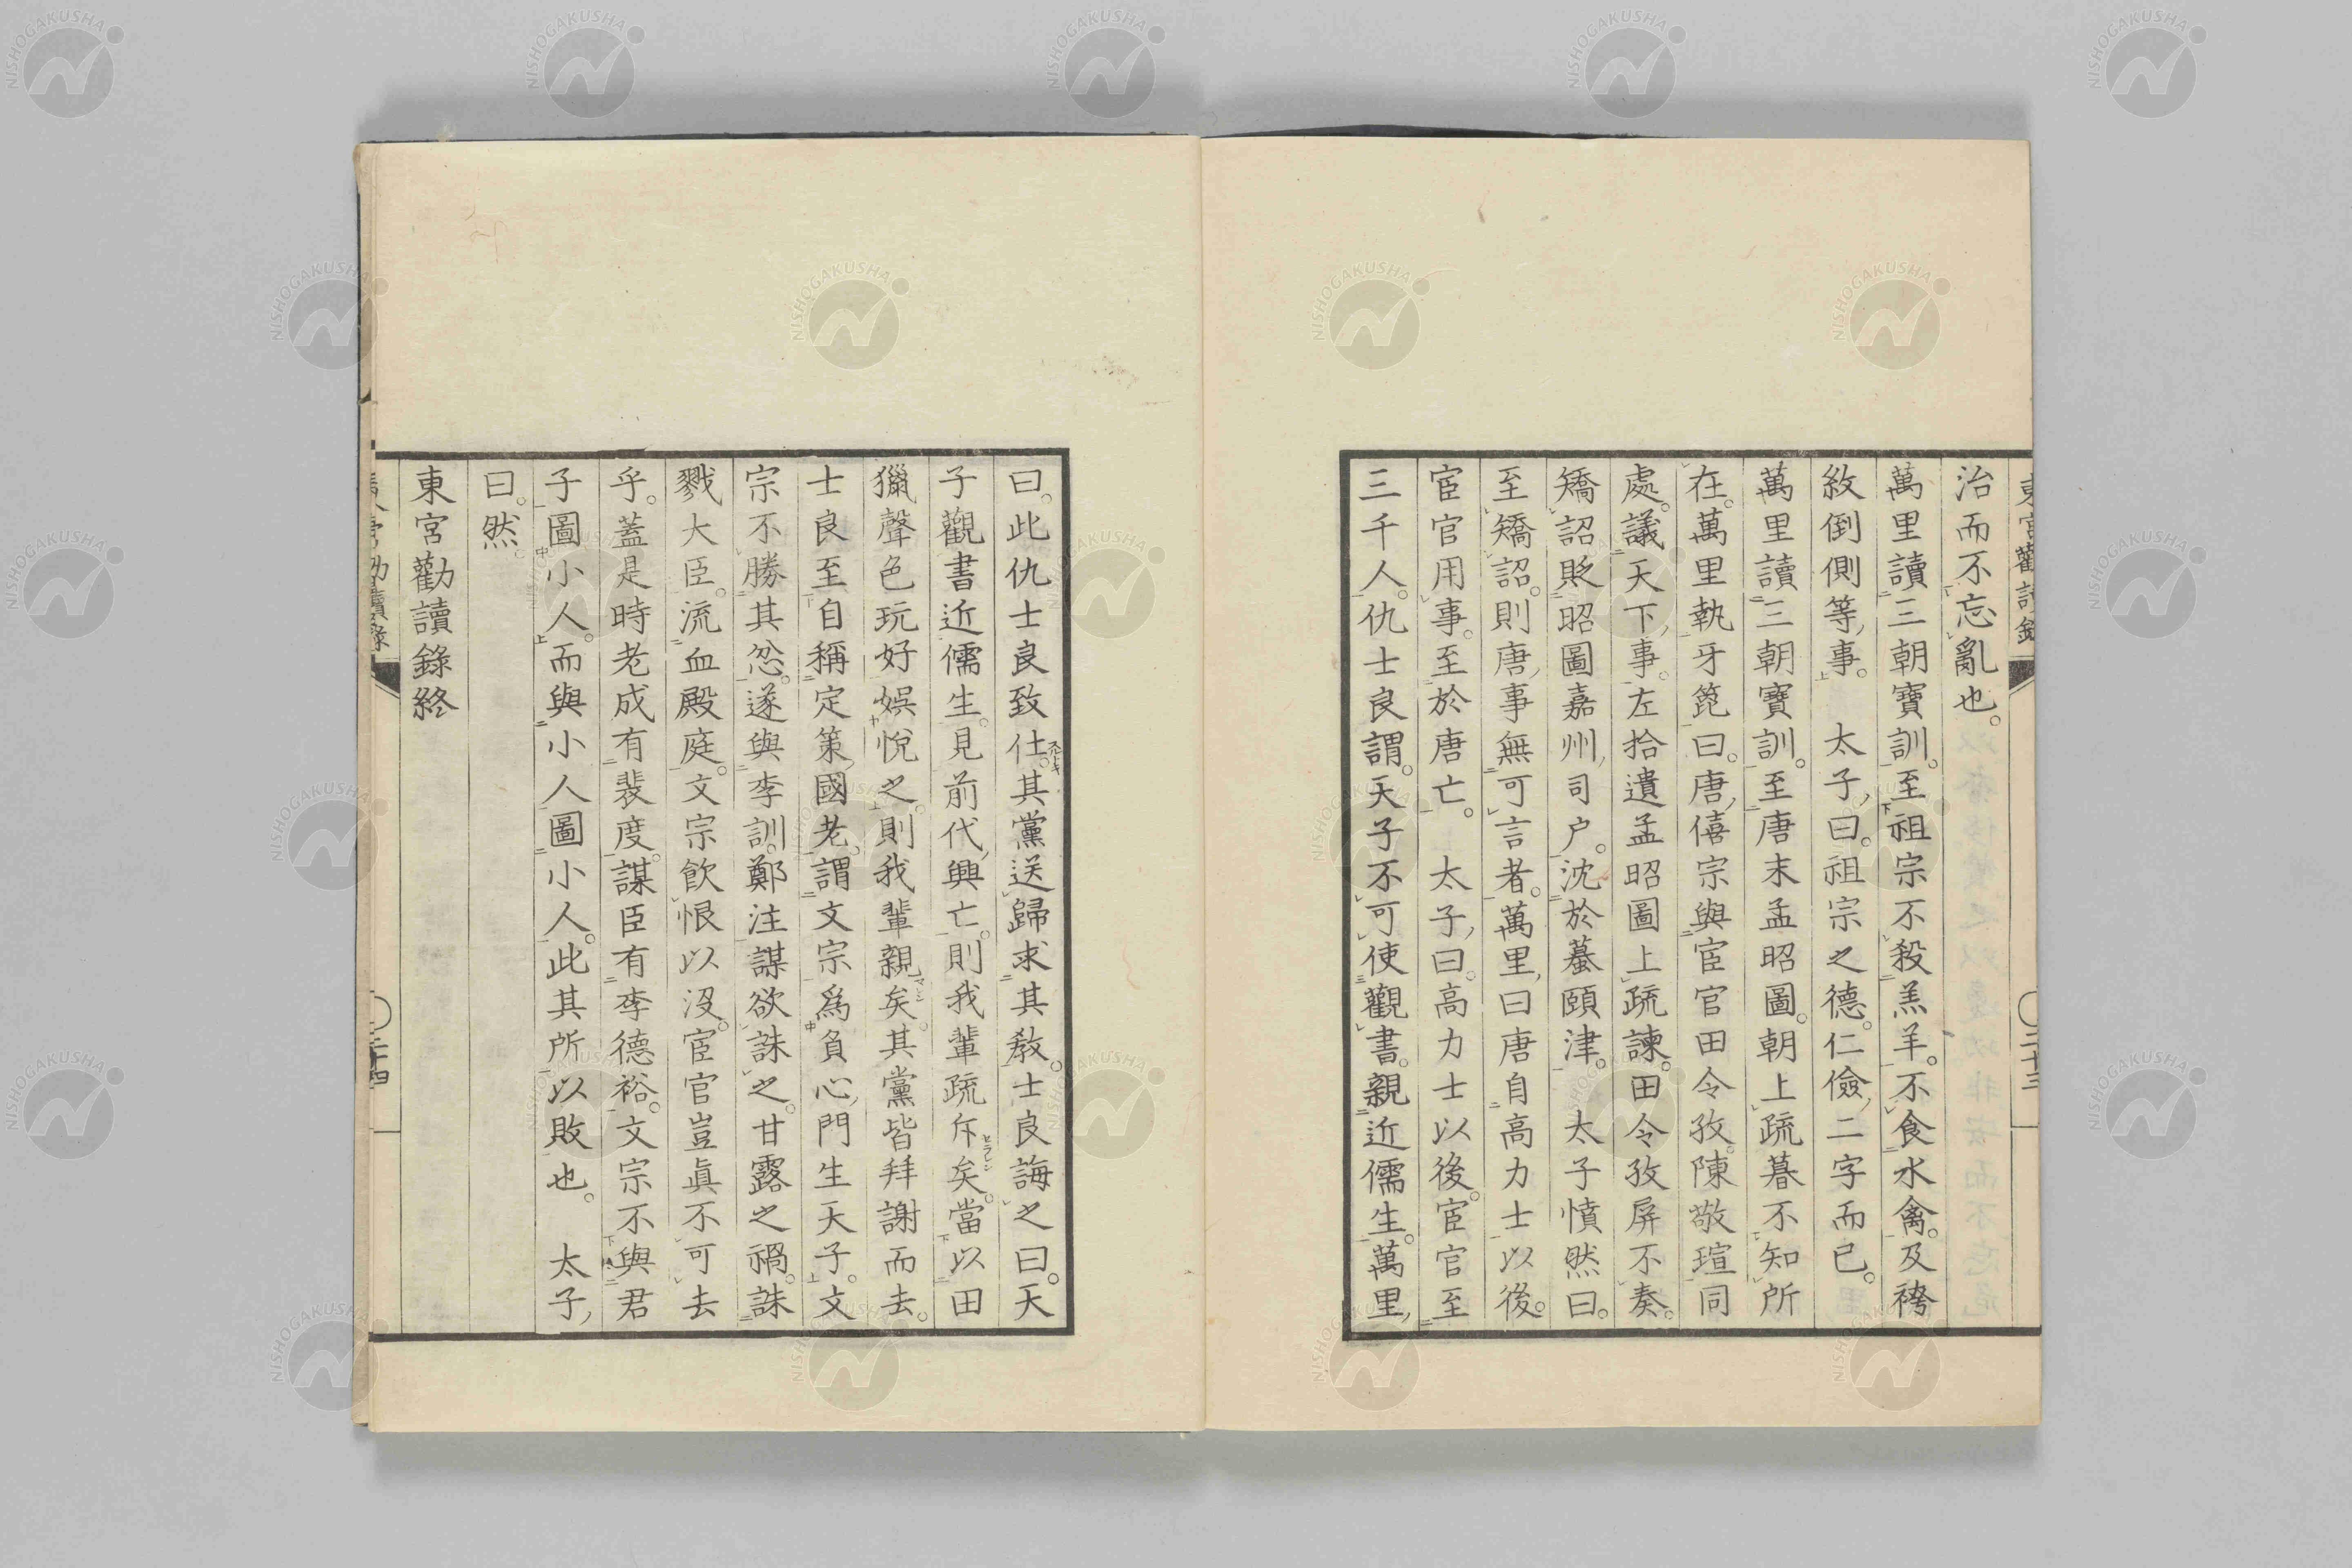 東宮勸讀錄
治而不忘亂也。
萬里讀三朝寶訓。至祖宗不殺羔羊。不食水禽。及袴
紋倒側等事。 太子曰。祖宗之德。仁儉二字而已。
萬里讀三朝寶訓。至唐末孟昭圖。朝上疏暮不知所
在。萬里執牙箆曰。唐僖宗與宦官田令孜。陳敬瑄同
處。議天下事。左拾遺孟昭圖上疏諫。田令孜屏不奏。
矯詔貶昭圖嘉州司户。沈於蟇頤津。 太子憤然曰。
至矯詔。則唐事無可言者。萬里曰唐自高力士以後。
宦官用事。至於唐亡。 太子曰。高力士以後。宦官至
三千人。仇士良謂。天子不可使觀書。親近儒生。萬里
〇二十三
曰。此仇士良致仕。其黨送歸求其教。士良誨之曰。天
子觀書近儒生。見前代興亡。則我輩疏斥矣。當以田
獵聲色玩好娯悅之。則我輩親矣。其黨皆拜謝而去。
士良至自稱定策國老。謂文宗爲負心門生天子。文
宗不勝其忿。遂與李訓。鄭注謀欲誅之。甘露之禍。誅
戮大臣。流血殿庭。文宗飲恨以沒。宦官豈眞不可去
乎。蓋是時老成有裴度。謀臣有李德裕。文宗不與君
子圖小人。而與小人圖小人。此其所以敗也。 太子
曰。然。
東宮勸讀錄終
〇二十四
NISHOGAKUSHA